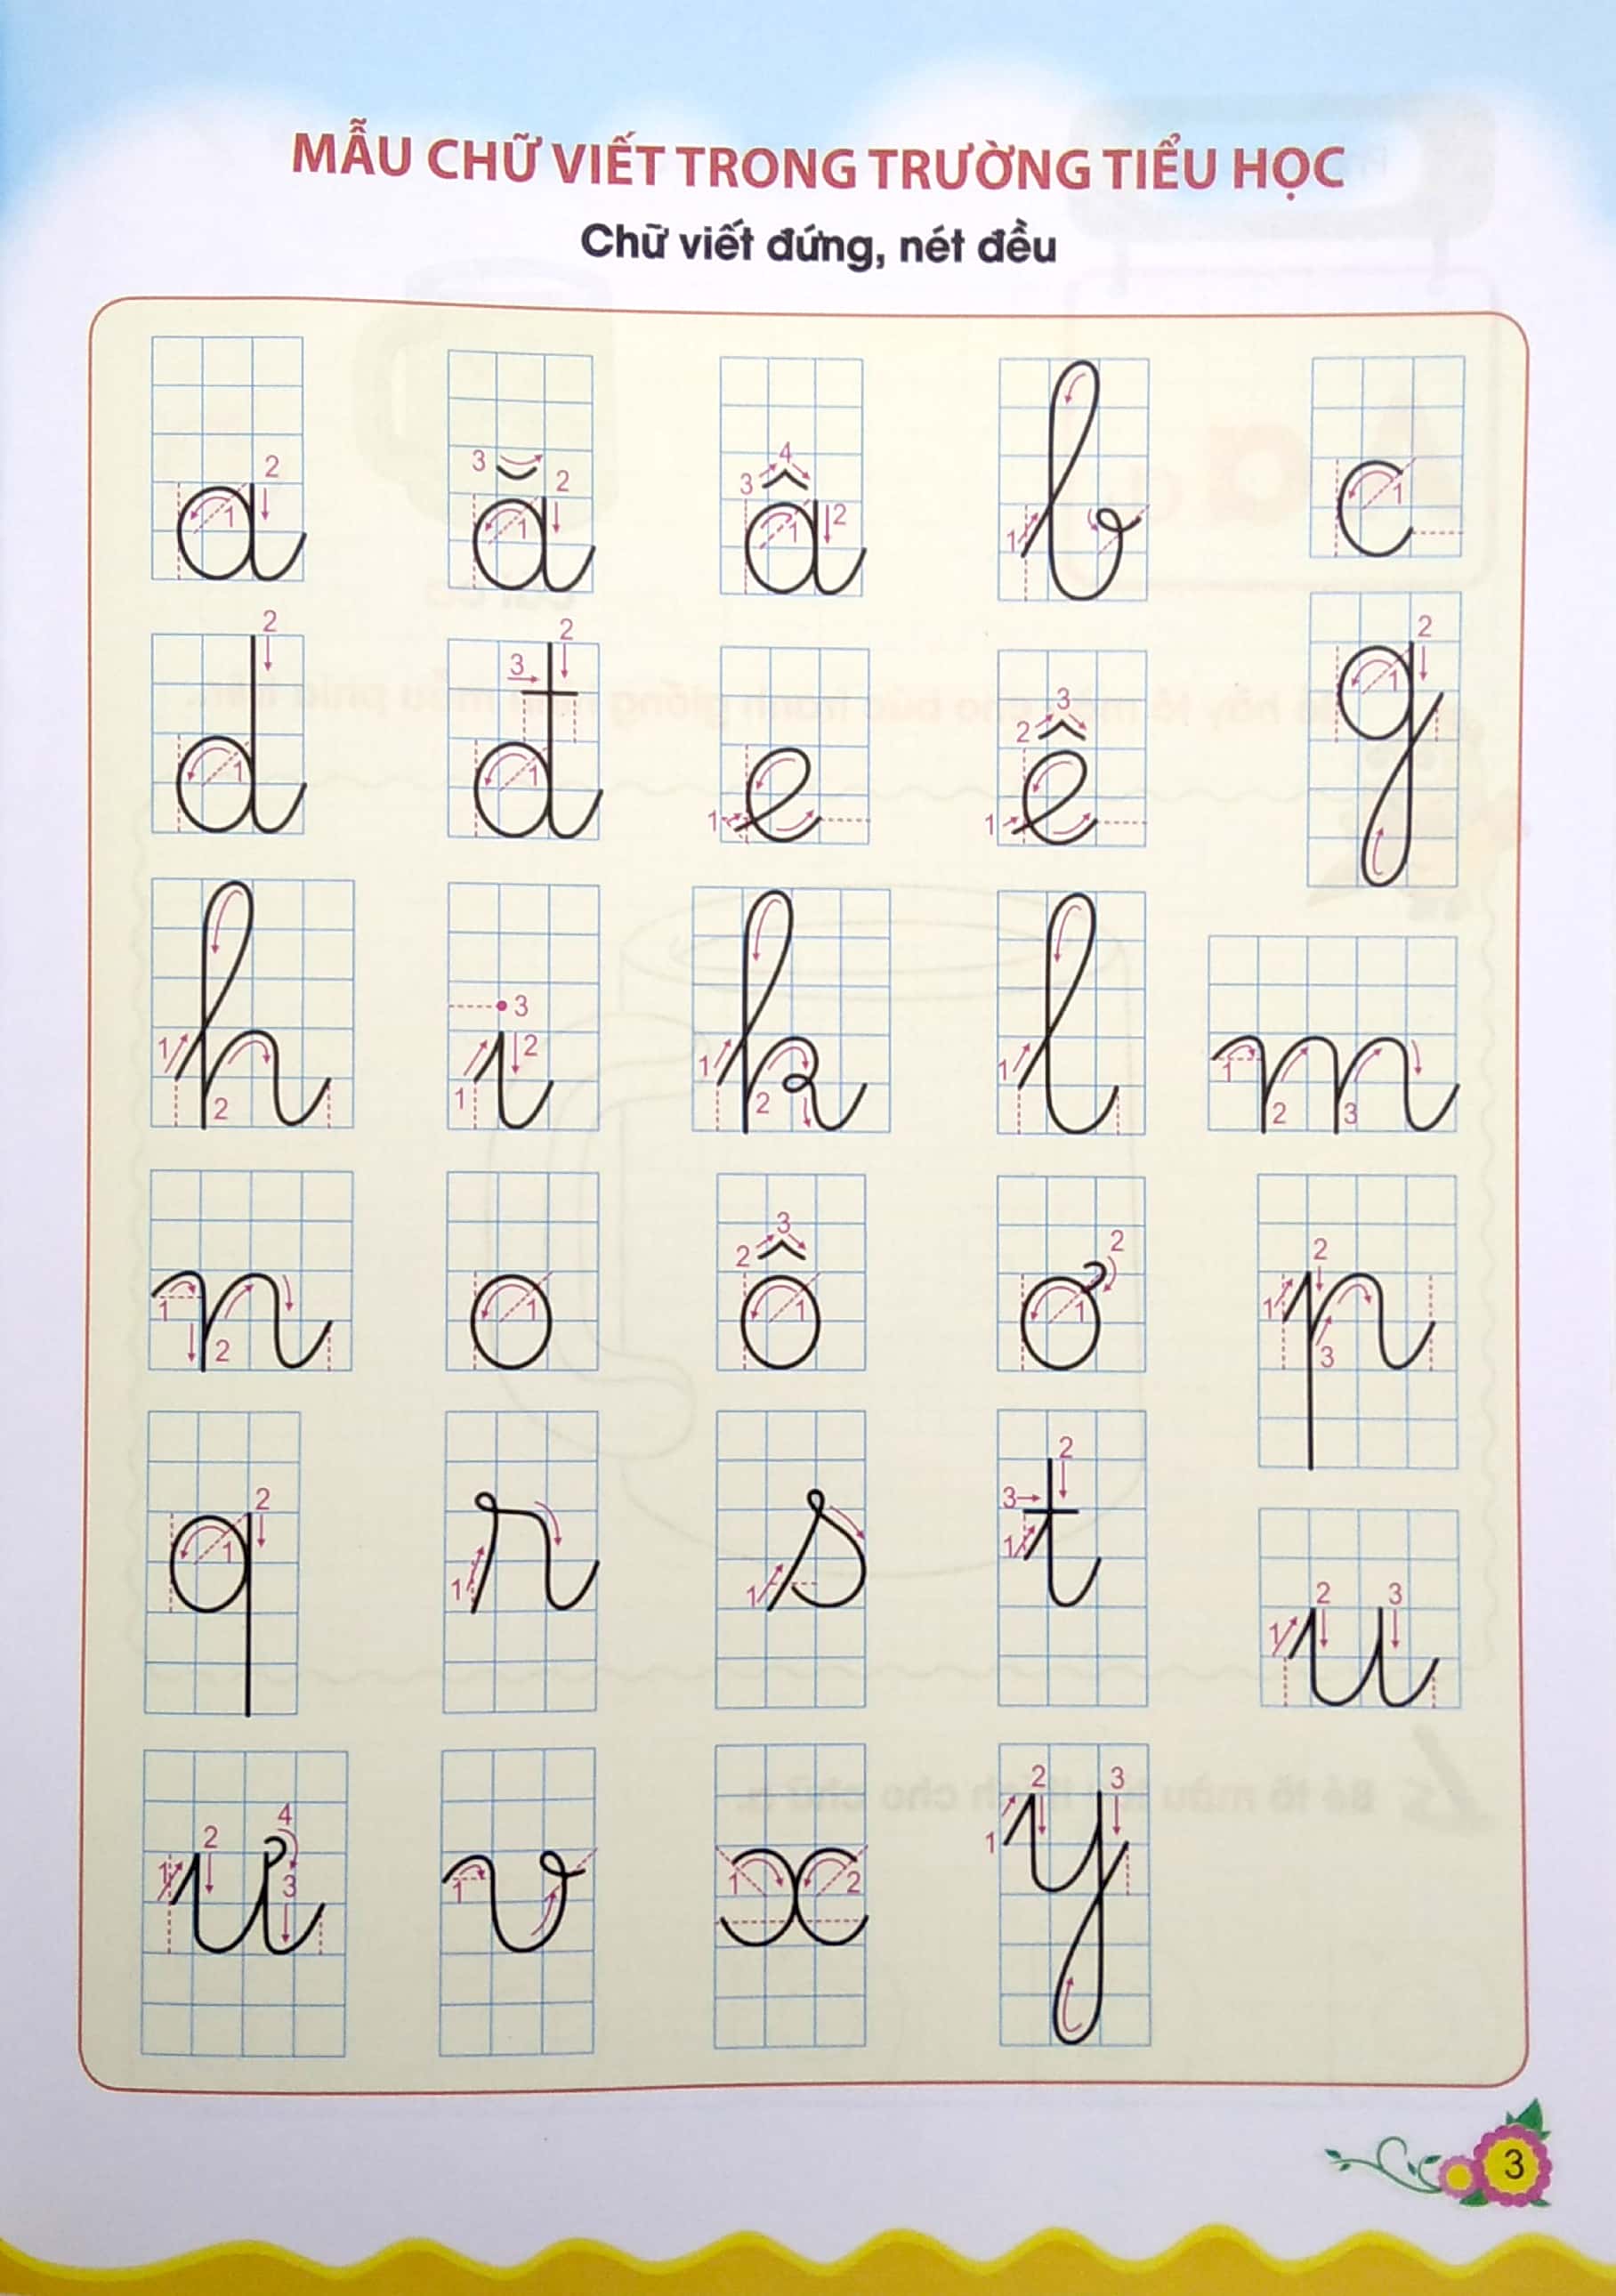 MẪU CHỮ VIẾT TRONG TRƯỜNG TIỂU HỌC
Chữ viết đứng, nét đều
a ă â b c
d đ e ê g
h i k l m
n o ô ơ p
q r s t u
ư v x y
3